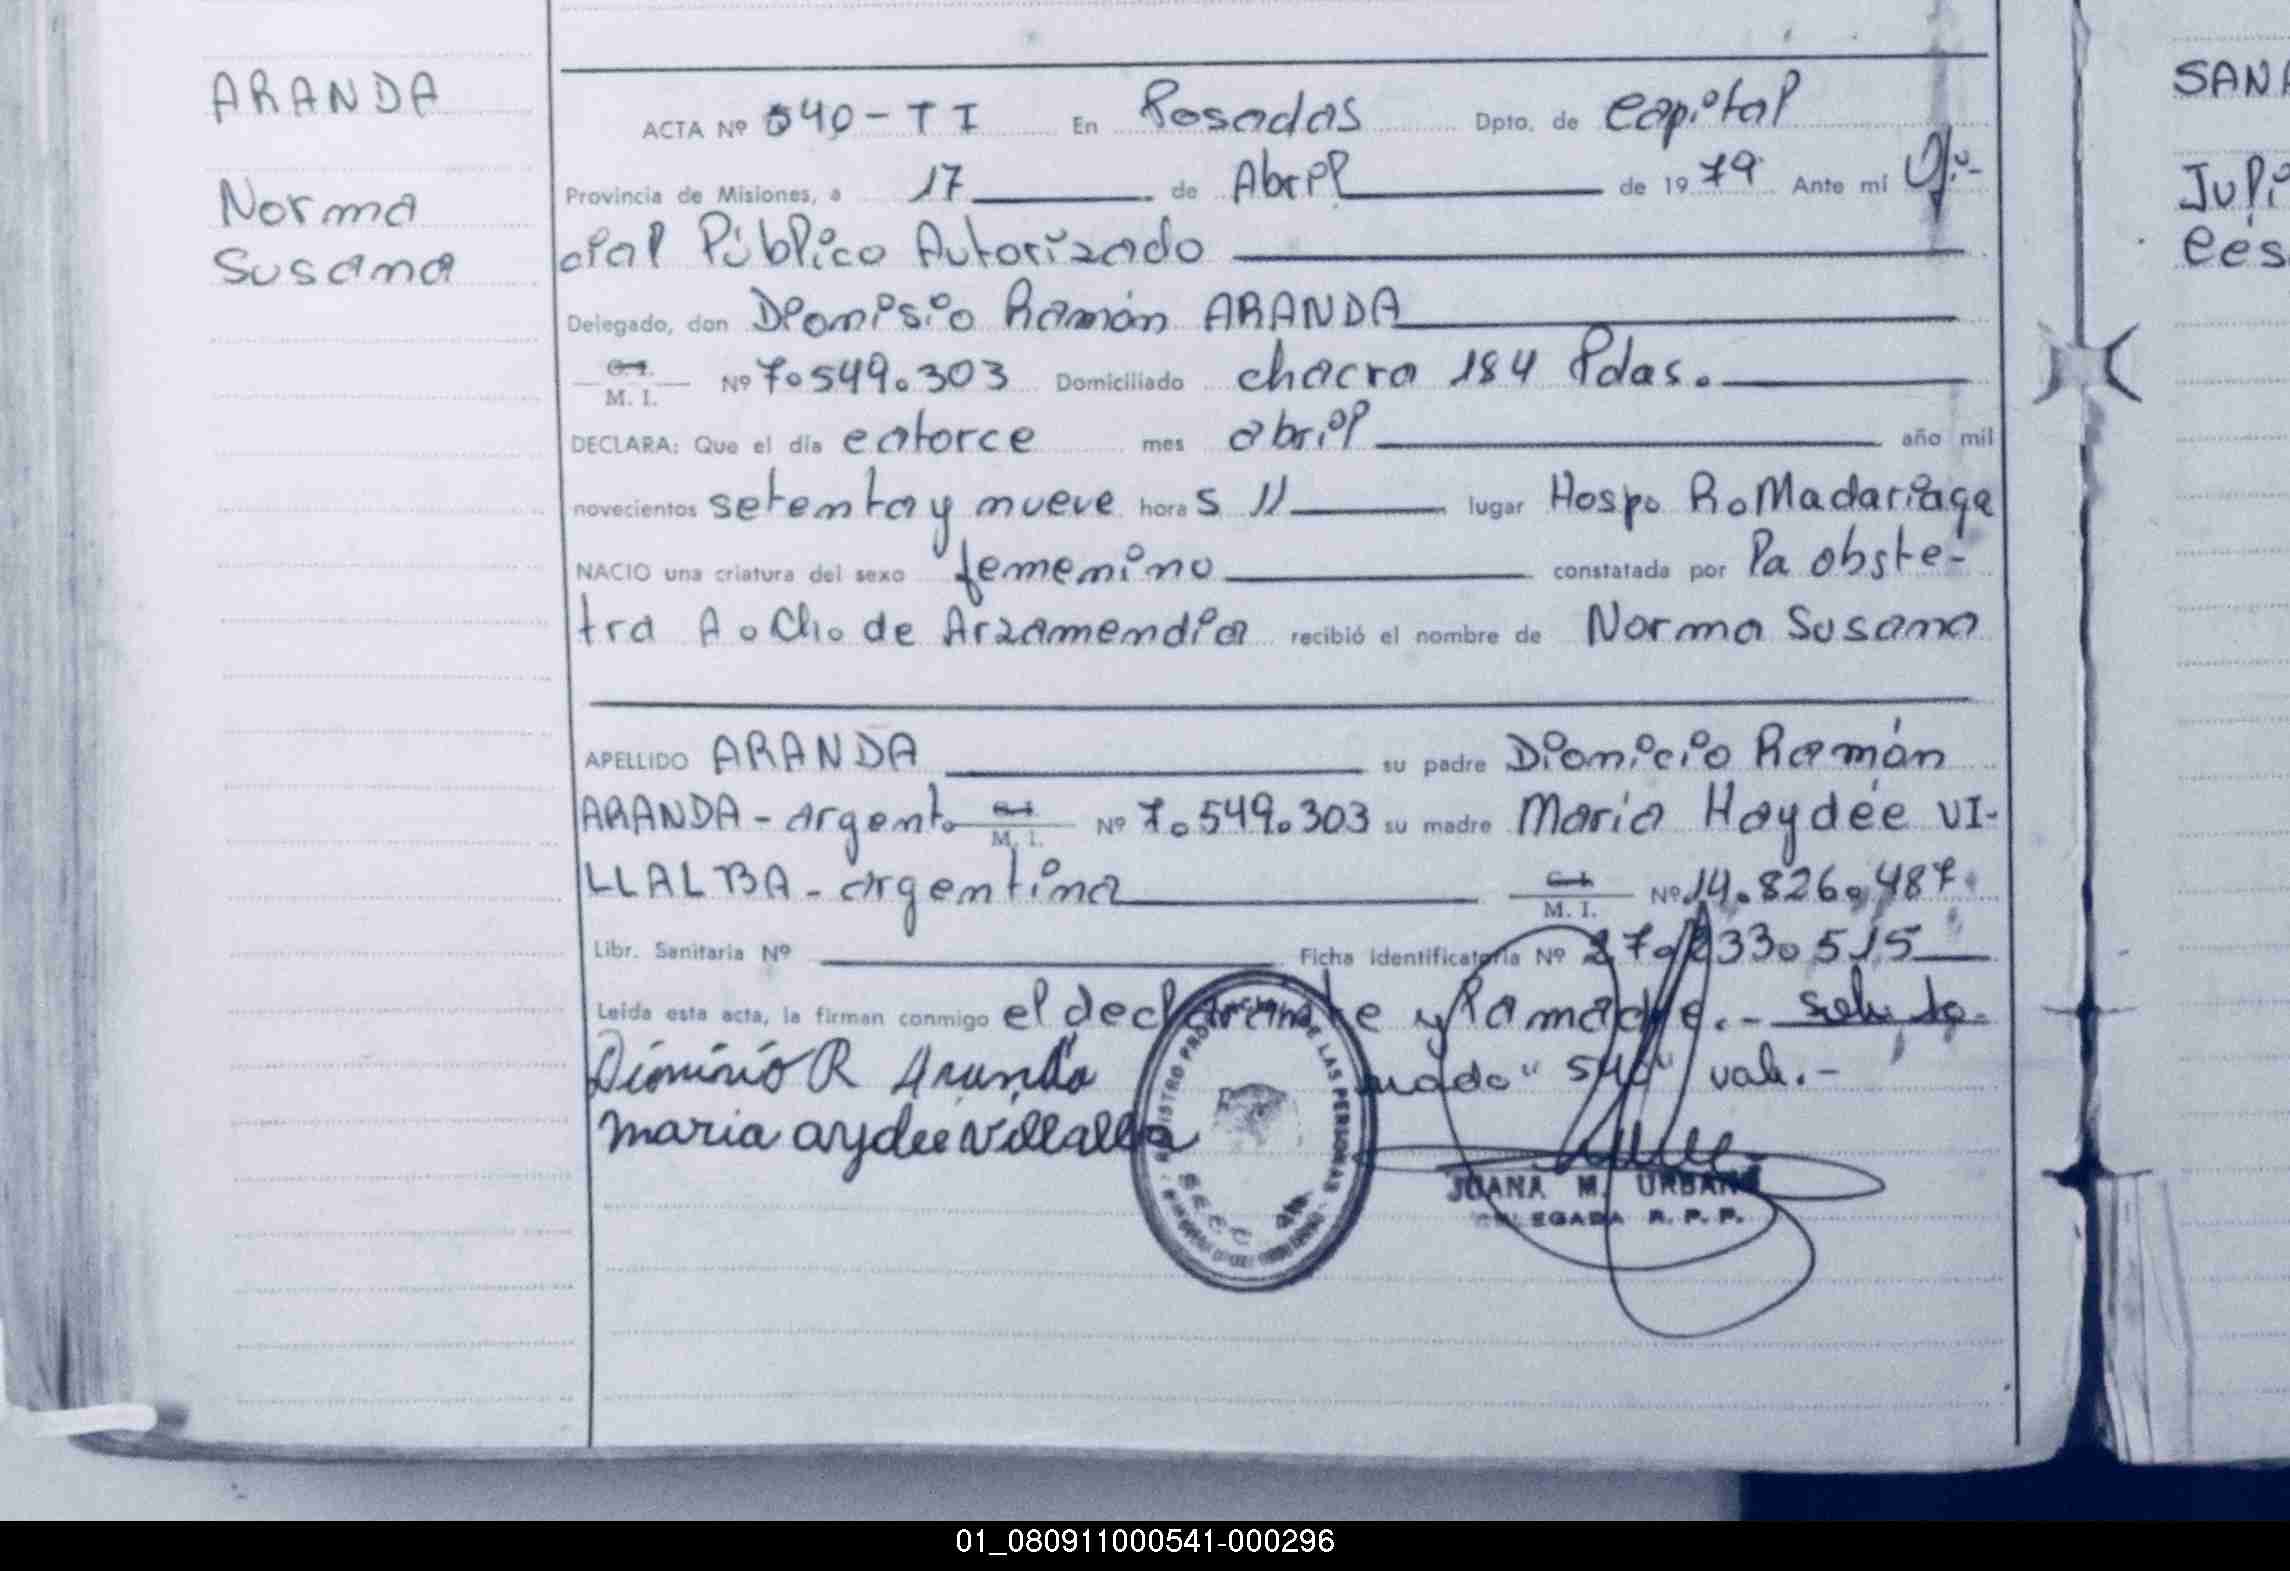 ARANDA
Norma
Susana
ACTA Nº 540-T I En Posadas Dpto. de Capital
Provincia de Misiones, a 17 de Abril de 1979 Ante mi Ofi-
cial Público Autorizado
Delegado, don Dionisio Ramón ARANDA
C.I.
M. I. Nº 7.549.303 Domiciliado chacra 184 Pdas.
DECLARA: Que el día catorce mes abril año mil
novecientos setenta y nueve hora s 11 lugar Hosp. R.Madariaga
NACIO una criatura del sexo femenino constatada por la obste-
tra A. Ch. de Arzamendia recibió el nombre de Norma Susana
APELLIDO ARANDA su padre Dionicio Ramón
ARANDA - argent. C.I. M. I. Nº 7.549.303 su madre María Haydée VI-
LLALBA - argentina C.I. M. I. Nº 14.826.487
Libr. Sanitaria Nº Ficha Identificatoria Nº 27.233.515
Leída esta acta, la firman conmigo el declarante y la madre.-
Dionicio R Aranda "540" vale.-
maria aydee Villalba
REGISTRO PRO DE LAS PERSONAS
SECC
JUANA M. URBAN
DELEGADA R. P. P.
SANA
Juli
Cés
01_080911000541-000296